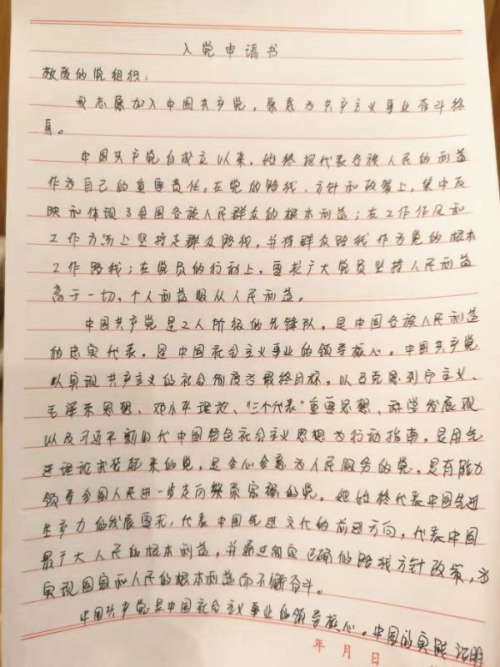 入党申请书
敬爱的党组织:
我志愿加入中国共产党,愿意为共产主义事业奋斗终
身。
中国共产党自成立以来,始终把代表各族人民的利益
作为自己的重要责任,在党的路线、方针和政策上,集中反
映和体现了全国各族人民群众的根本利益;在工作作风和
工作方法上坚持走群众路线,并将群众路线作为党的根本
工作路线;在党员的行动上,要求广大党员坚持人民利益
高于一切,个人利益服从人民利益。
中国共产党是工人阶级的先锋队,是中国各族人民利益
的忠实代表,是中国社会主义事业的领导核心。中国共产党
以实现共产主义的社会制度为最终目标,以马克思列宁主义、
毛泽东思想、邓小平理论、“三个代表”重要思想、科学发展观
以及习近平新时代中国特色社会主义思想为行动指南,是用先
进理论武装起来的党,是全心全意为人民服务的党,是有能力
领导全国人民进一步走向繁荣富强的党。她始终代表中国先进
生产力的发展要求,代表中国先进文化的前进方向,代表中国
最广大人民的根本利益,并通过制定正确的路线方针政策,为
实现国家和人民的根本利益而不懈奋斗。
中国共产党是中国社会主义事业的领导核心。中国的实践证明
年 月 日